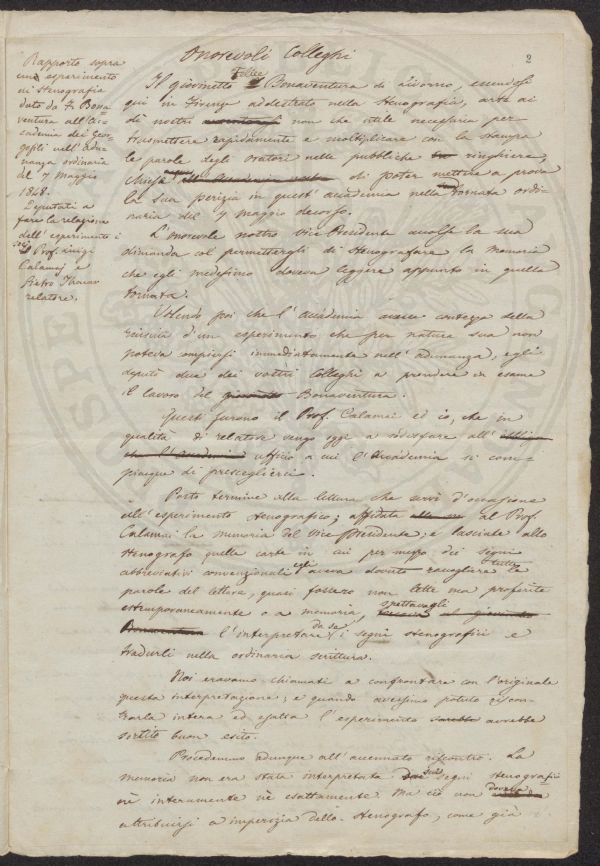 2
Onorevoli Colleghi
Rapporto sopra
uno esperimento
di Stenografia
dato da F. Bona=
ventura all'Ac=
cademia dei Geor=
gofili nell'Adu=
nanza ordinaria
del 7 Maggio
1848.
Deputati a
fare la relazione
dell'esperimento i
socj
Prof. Luigi
Calamaj e
Pietro Thouar
relatore.
Il giovinetto Felice Bonaventura di Livorno, essendosi
qui in Firenze addestrato nella Stenografia, arte ai
dì nostri non che utile necessaria per
trasmettere rapidamente e moltiplicare con la stampa
le parole degli oratori nelle pubbliche ringhiere,
chiese di poter mettere a prova
la sua perizia in quest'accademia nella tornata ordi=
naria del 7 Maggio decorso.
L'onorevole nostro Vice Presidente accolse la sua
dimanda col permettergli di stenografare la Memoria
che egli medesimo doveva leggere appunto in quella
tornata.
Volendo poi che l'accademia avesse contezza della
riuscita d'un esperimento che per natura sua non
poteva compiersi immediatamente nell'adunanza, egli
deputò due dei vostri Colleghi a prendere in esame
il lavoro del giovinetto Bonaventura.
Questi furono il Prof. Calamai ed io, che in
qualità di relatore vengo oggi a sodisfare all'
ufficio a cui l'Accademia si com=
piacque di presceglierci.
Posto termine alla lettura che servì d'occasione
all'esperimento stenografico; affidata al Prof.
Calamai la memoria del Vice Presidente, e lasciate allo
stenografo quelle carte in cui per mezzo dei segni
abbreviativi convenzionali egli aveva dovuto raccogliere tutte le
parole del lettore, quasi fossero non lette ma proferite
estemporaneamente o a memoria, spettavagli
l'interpretare da se i segni stenografici e
tradurli nella ordinaria scrittura.
Noi eravamo chiamati a confrontare con l'originale
questa interpretazione; e quando avessimo potuto riscon=
trarla intera ed esatta l'esperimento sarebbe avrebbe
sortito buon esito.
Procedemmo adunque all'accennato riscontro. La
memoria non era stata interpretata sui segni stenografici
nè interamente nè esattamente. Ma ciò non doveva
attribuirsi a imperizia dello Stenografo, come già